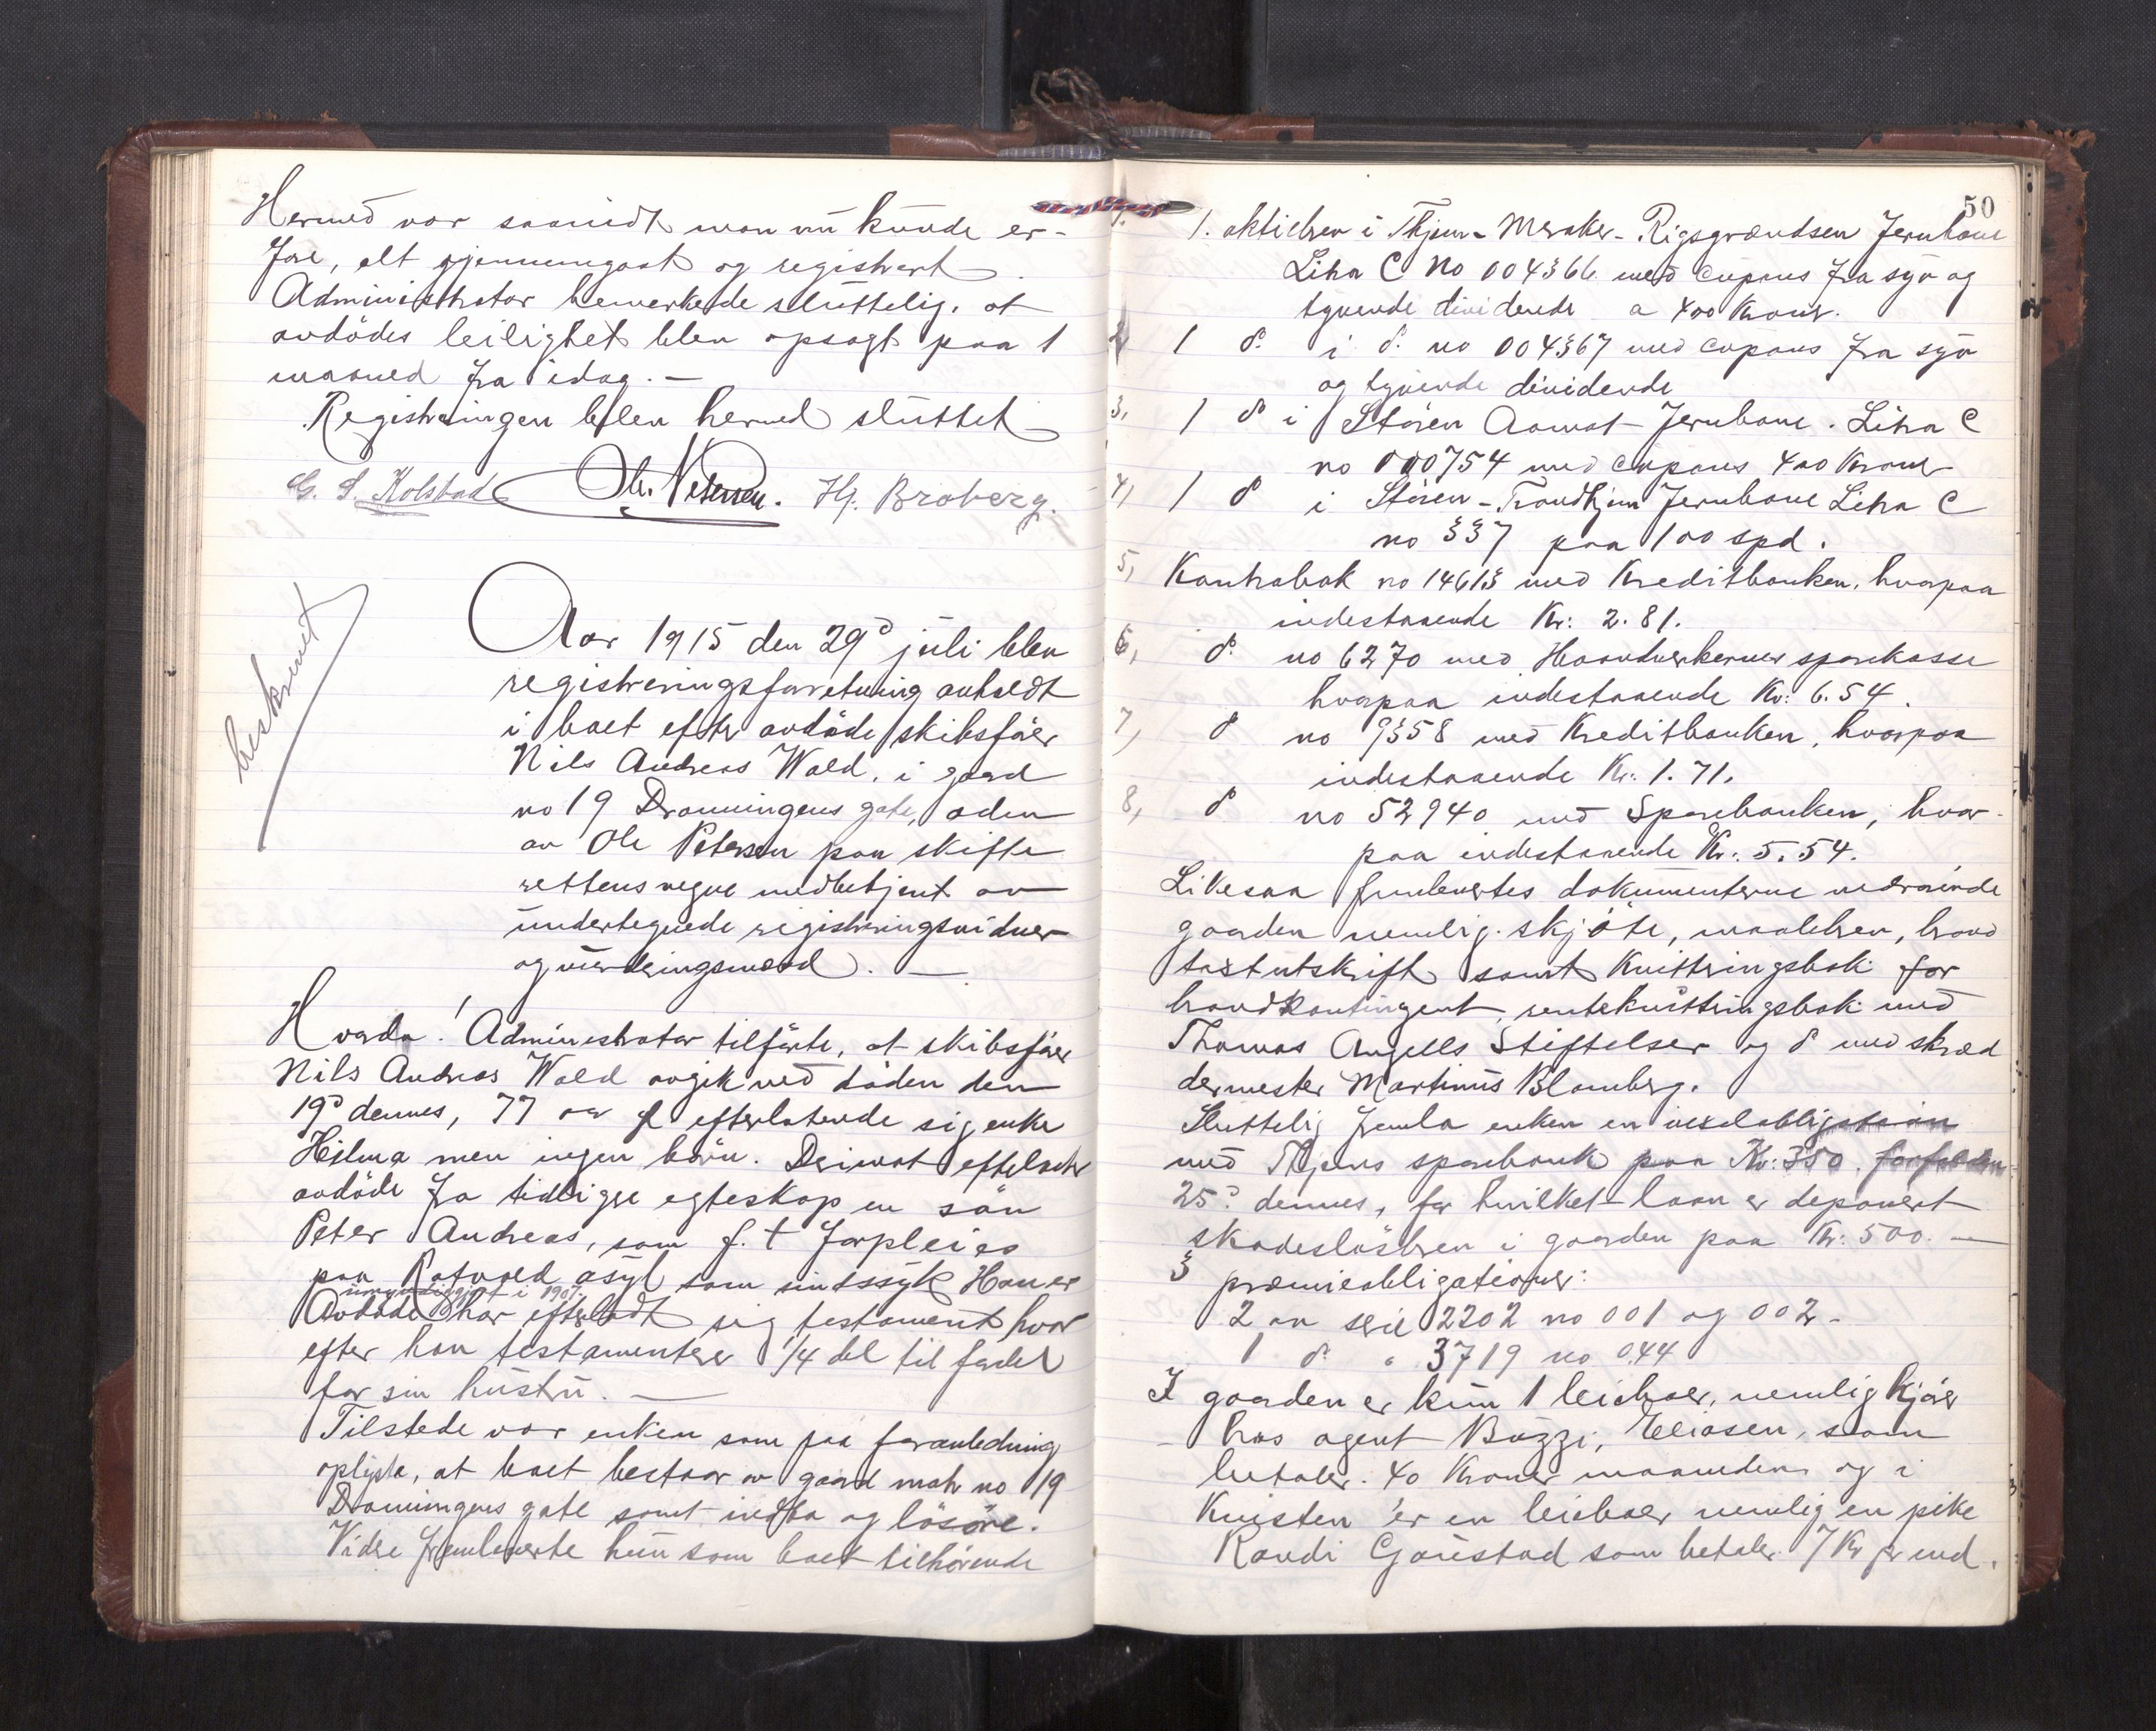 Hermed var saavidt man nu kunde er-
fare, alt gjennemgaat og registrert.
Administrator bemerkede sluttelig, at
avdödes leilighet blev opsagt paa 1
maaned fra idag. —
Registreringen blev hermed sluttet
G. S. Kolstad Ole Petersen. Hj. Broberg.
beskrevet
Aar 1915 den 29d juli blev
registreringsforretning avholdt
i boet efter avdöde skibsförer
Nils Andreas Wald, i gaard
no 19 Dronningens gate,
av Ole Petersen paa skifte
rettens vegne medbetjent av
undertegnede registringsvidner
og vurderingsmænd. —
Hvorda! Administrator tilförte, at skibsförer
Nils Andreas Wald avgik ved döden den
19d dennes, 77 aar gl efterlatende sig enke
Hilma men ingen börn. Derimot efterlater
avdöde fra tidligere egteskap en sön
Peter Andreas, som f. t forpleies
paa Rotvold asyl som sindssyk Han er
umyndiggjort i 1901.
Avdöde har efterladt sig testament hvor
efter han testamenterer 1/4 del til fordel
for sin hustru. —
Tilstede var enken som paa foranledning
oplyste, at boet bestaar av gaard matr no 19
Dronningens gate samt indbo og lösöre.
Videre fremleverte hun som boet tilhörende
50
1. 1. aktiebrev i Thjem-Meraker-Rigsgrændsen Jernbane
Litra C No 004366 med cupons fra syv og
tyvende dividende a 400 Kroner.
2, 1 do. i do. no 004367 med cupons fra syv
og tyvende dividende
3, 1 do i Stören Aamot Jernbane. Litra C
no 000754 med cupons 400 Kroner
4, 1 do i Stören-Trondhjem Jernbane Litra C
no 337 paa 100 spd.
5, Kontrabok no 14613 med Kreditbanken, hvorpaa
indestaaende Kr: 2.81.
6, do. no 6270 med Haandverkernes sparekasse
hvorpaa indestaaende Kr: 6.54.
7, do no 9358 med Kreditbanken, hvorpaa
indestaaende Kr: 1.71.
8, do no 52940 med Sparebanken, hvor-
paa indestaaende Kr: 5.54.
Likesaa fremlevertes dokumenterne vedrörende
gaarden nemlig. skjöte, maalebrev, brand
takstutskrift samt Kvitteringsbok for
brandkontingent, rentekvitteringsbok med
Thomas Angells Stiftelser og do med skræd
dermester Martinus Blomberg.
Sluttelig fremla enken en vexelobligation
med Thjems sparebank paa Kr: 350. forfalden
25d. dennes, for hvilket laan er deponert
skadeslösbrev i gaarden paa Kr: 500. —
3 præmieobligationer:
2 av serie 2202 no 001 og 002 -
1 do. " 3719 no 044
I gaarden er kun 1 leieboer, nemlig
hos agent Buzzi, Eliasen, som
betaler. 40 Kroner maaneden og i
Kvisten er en leieboer nemlig en pike
Randi Gaustad som betaler 7 Kr pr md.